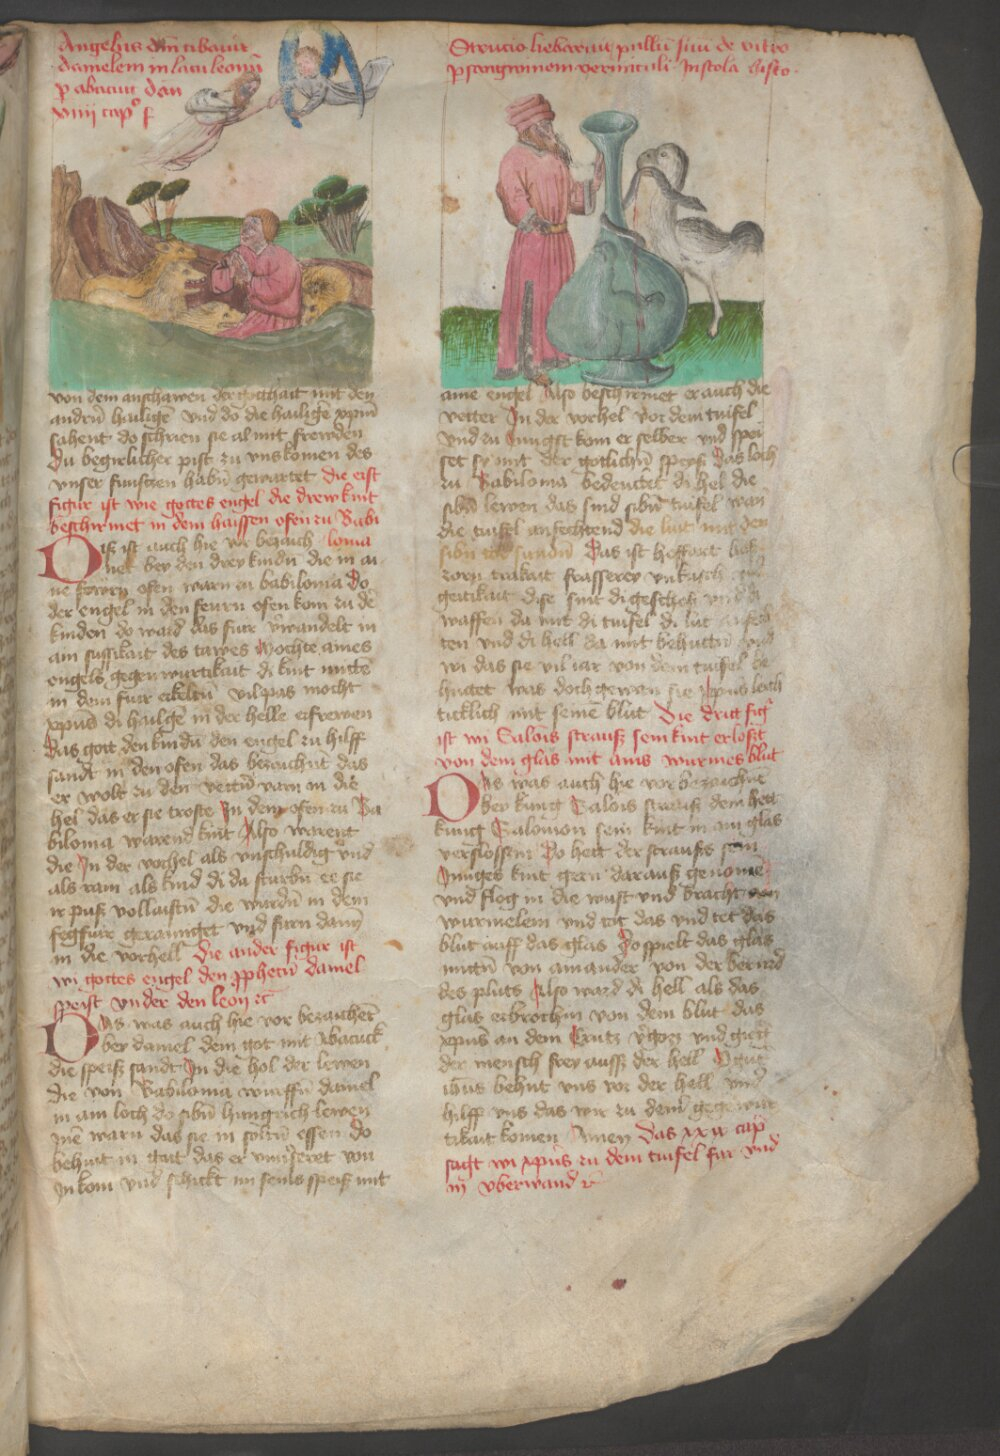 Angelus dm̄ cibauit
danielem in lacu leonū
p abacuc dan
viiij capᵒ
Strucio liberauit pullū suū de vitro
p sanguinem vermiculi Instola histo
von dem anschawen der gotthait mit den
andrn̄ hailigē vnd do die hailigē xp̄m̄
sahent do schrien sie al mit frewden
Du begirlicher pist zu vns komen des
vnser finstren habn̄ gewartet die erst
figur ist wie gottes engel die drew kint
beschirmet in dem haissen ofen zu Babi
lonia
Dis ist auch hie vor bezaich
net bey den drey kindn̄ die in ai
ne fewrn̄ ofen warn zu babilonia Do
der engel in den feurn ofen kom zu dē
kinden do ward das fuir v̄wandelt in
ain sussikait des tawes Mochte aines
engels gegenwurtikait di kint mittē
in dem fuir erkeltn̄ vil pas mocht
xpūs di hailgē in der helle erfrewen
Das gott den kindn̄ den engel zu hilff
sandt in den ofen das bezaichnt das
er wolt zu den vettn̄ varn in die
hel das er sie troste In dem ofen zu Ba
bilonia warend kint Also warent
die In der vorhel als vnschuldig vnd
als rain als kind di da sturbn̄ ee sie
ir puß vollaistn̄ die wurdn̄ in dem
fegfuir gerainiget vnd furn dann̄
in die vorhell die ander figur ist
wi gottes engel den p̄phetn̄ daniel
speist vnder den leon
Das was auch hie vor bezaichet
bey daniel dem got mit Abacuck
die speiß sandt In die hol der lewen
Die von Babilonia wurffn̄ daniel
in ain loch do sibn̄ hungrich lewen
Inē warn das sie in soltn̄ essen do
behut in got das er vnu̇seret von
In kom vnd schickt im seins speiß mit
aine engel Also beschirmet er auch die
vetter In der vorhel vor dem tuifel
vnd zu iungst kom er selber vnd spei
set sy mit der gotlichn̄ speyß Das loch
zu Babilonia bedeutet di hel die
sibn̄ lewen das sind sibn̄ tuifel wan
die tuifel anfechtend die luit mit den
sibn̄ tod sundn̄ Das ist hoffart
zorn trakait frasserey vnkusch
geitikait dise sint di geschoß vnd di
waffen da mit di tuifel di luit
ten vnd di hell da mit behuttn̄ vnd
wi das sie vil iar von dem tuifel be
huttet was doch gewan sie xpūs
ticklich mit seinē blut Die dritt fig
ist wi Salōis strauß sein kint erloßt
von dem glas mit ains wurmes blut
Das was auch hie vor bezaichnet
bey kunig Salōis strauß dem hett
kunig Salomon sein kint in ain glas
verslossen Do hett der strauß sein
Iunges kint gern darauß genomē
vnd flog in die wust vnd bracht ain
wurmelein vnd tot das vnd tet das
blut auff das glas Do spielt das glas
mittn̄ von ainander von der berurd
des pluts Also ward di hell als das
glas erbrochin von dem blut das
xpūs an dem Crutz v̄goß vnd giett
der mensch frey auß der hell
ih̄us behut vns vor der hell vnd
hilff vns das wir zu deiner gegenwur
tikait komen Amen Das xxix cap
sagt wi xpūs zu dem tuifel fur vnd
in vberwand